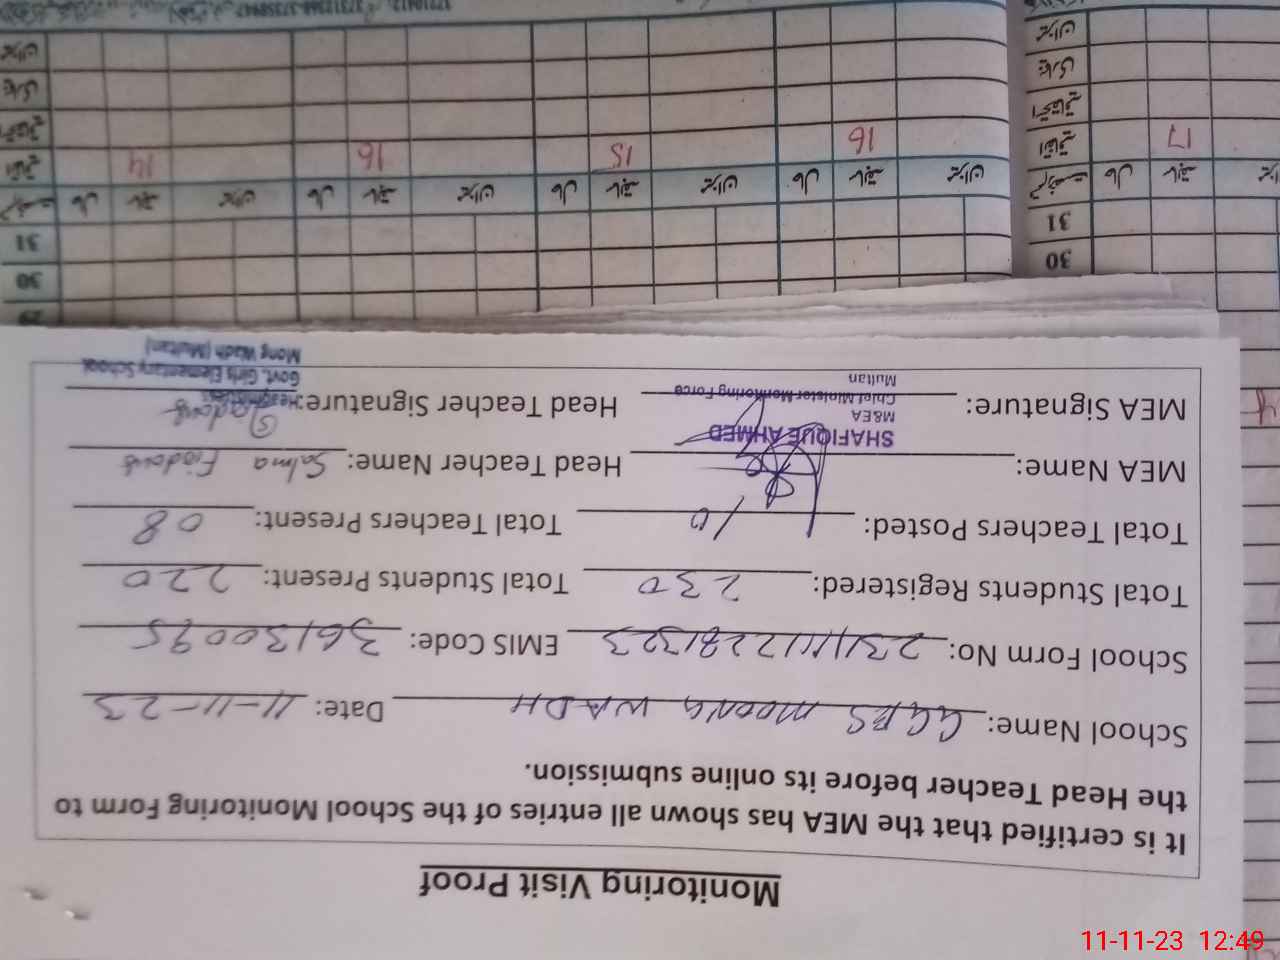 Monitoring Visit Proof
It is certified that the MEA has shown all entries of the School Monitoring Form to
the Head Teacher before its online submission.
School Name: GGES MOONG WADH Date: 11-11-23
School Form No: EMIS Code: 36130095
Total Students Registered: 230 Total Students Present: 220
Total Teachers Posted: 10 Total Teachers Present: 08
MEA Name: Head Teacher Name: Salma Firdous
SHAFIQUE AHMED
M&EA
Chief Minister Monitoring Force
Multan
MEA Signature: Head Teacher Signature:
Headmistress
Govt. Girls Elementary School
Mong Wadh (Multan)
29
30 30
31 31
میزان سابقہ حال میزان سابقہ حال میزان سابقہ حال میزان سابقہ حال
17 16 15 16 14
11-11-23 12:49